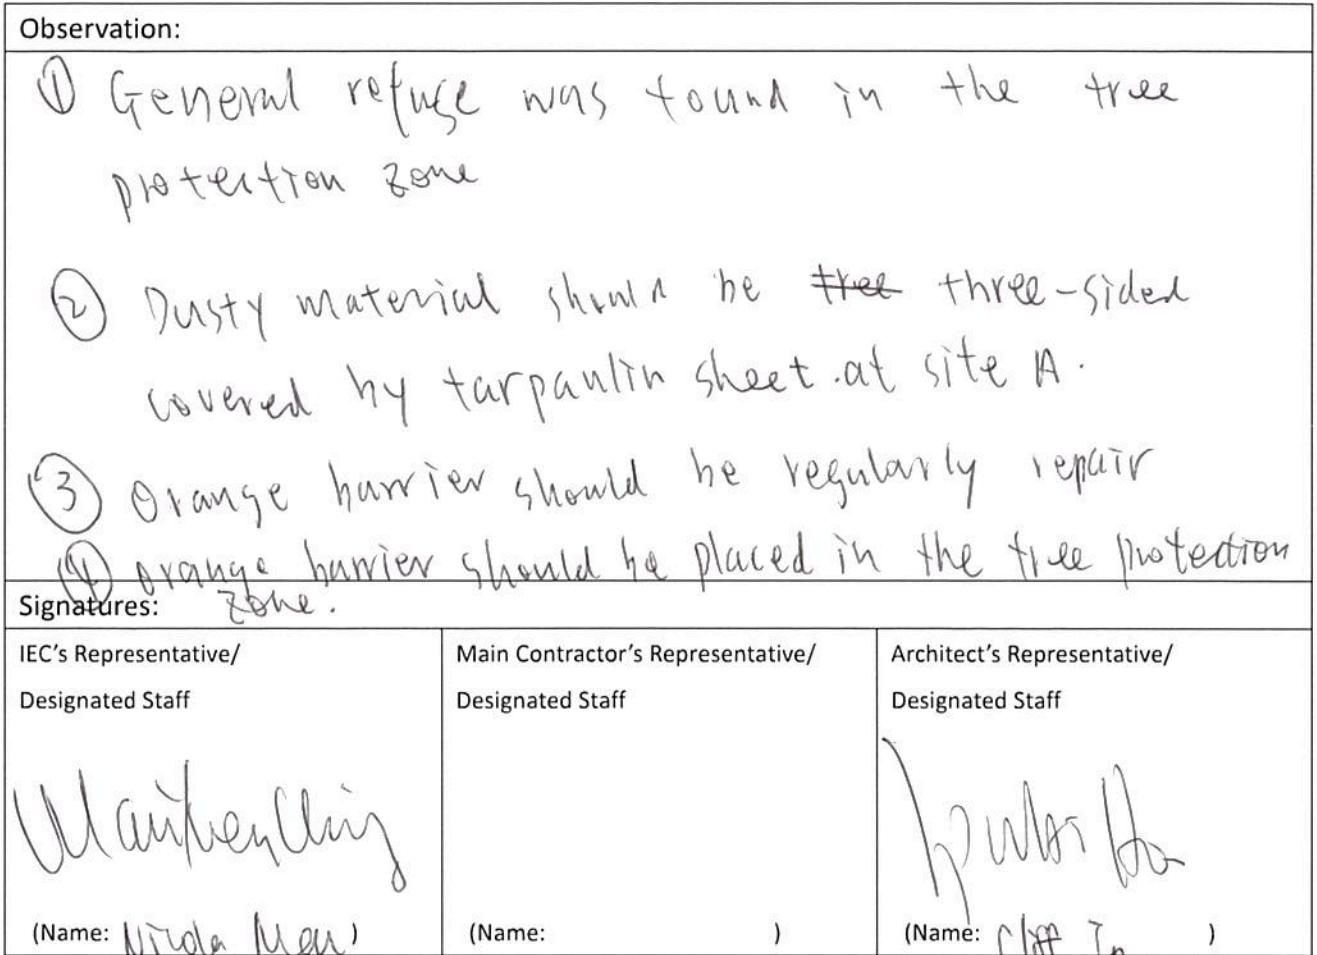 Observation:
① General refuse was found in the tree
protection zone
② Dusty material should be tree three-sided
covered by tarpaulin sheet.at site A.
③ Orange barrier should be regularly repair
④ orange barrier should be placed in the tree protection
zone.
Signatures:
IEC's Representative/
Designated Staff
Main Contractor's Representative/
Designated Staff
Architect's Representative/
Designated Staff
(Name: )
(Name: )
(Name: Cliff )